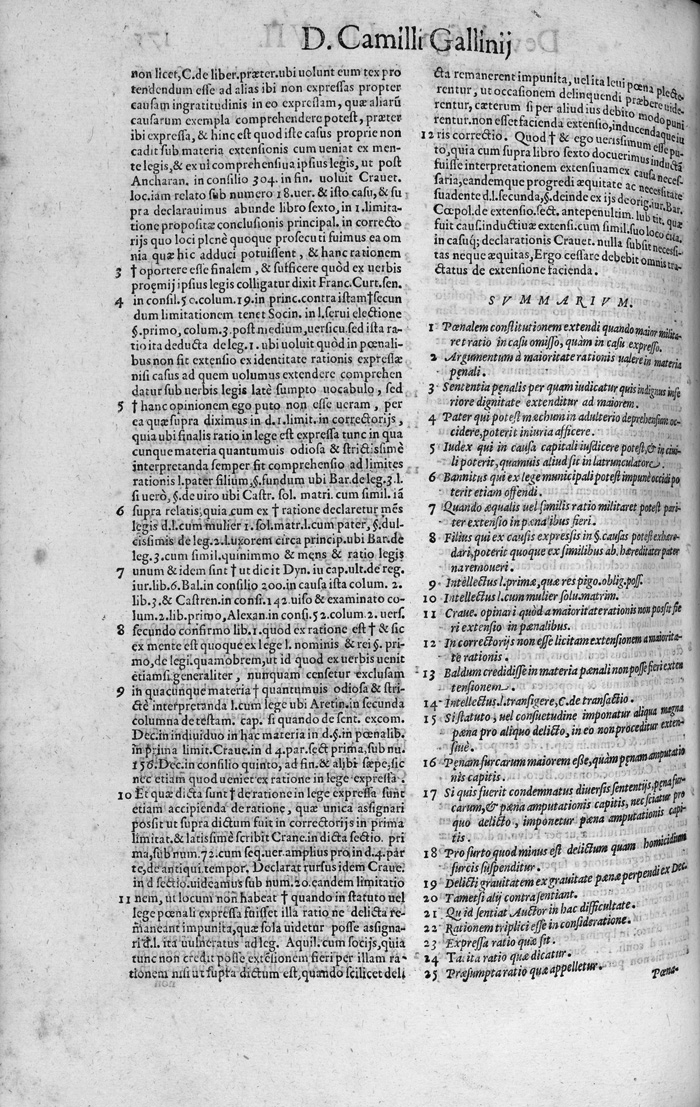 D. Camilli Gallinij
non licet, C. de liber. præter. ubi uolunt eum tex pro
tendendum esse ad alias ibi non expressas propter
causam ingratitudinis in eo expressam, quæ aliarũ
causarum exempla comprehendere potest, præter
ibi expressa, & hinc est quod iste casus proprie non
cadit sub materia extensionis cum ueniat ex men-
te legis, & ex ui comprehensiua ipsius legis, ut post
Ancharan. in consilio 304. in fin. uoluit Crauet.
loc. iam relato sub numero 18. uer. & isto casu, & su
pra declarauimus abunde libro sexto, in 1. limita-
tione propositæ conclusionis principal. in correcto
rijs quo loci plenè quoque prosecuti fuimus ea om
nia quæ hic adduci potuissent, & hanc rationem
3 † oportere esse finalem, & sufficere quòd ex uerbis
proęmij ipsius legis colligatur dixit Franc. Curt. sen.
4 in consil. 50. colum. 19. in princ. contra istam † secun
dum limitationem tenet Socin. in l. serui electione
§. primo, colum. 3. post medium, uersicu. sed ista ra-
tio ita deducta de leg. 1. ubi uoluit quòd in pœnali-
bus non sit extensio ex identitate rationis expressæ
nisi casus ad quem uolumus extendere comprehen
datur sub uerbis legis latè sumpto uocabulo, sed
5 † hanc opinionem ego puto non esse ueram, per
ea quæ supra diximus in d. 1. limit. in correctorijs,
quia ubi finalis ratio in lege est expressa tunc in qua
cunque materia quantumuis odiosa & strictissimè
interpretanda semper fit comprehensio ad limites
rationis l. pater filium, §. fundum ubi Bar. de leg. 3. l.
si uerò, §. de uiro ubi Castr. sol. matri. cum simil. iã
6 supra relatis, quia cum ex † ratione declaretur mẽs
legis d. l. cum mulier 1. sol. matr. l. cum pater, §. dul-
cissimis de leg. 2. l. uxorem circa princip. ubi Bar. de
leg. 3. cum simil. quinimmo & mens & ratio legis
7 unum & idem sint † ut dicit Dyn. in cap. ult. de reg.
iur. lib. 6. Bal. in consilio 200. in causa ista colum. 2.
lib. 3. & Castren. in consi. 142. uiso & examinato co-
lum. 2. lib. primo, Alexan. in consi. 52. colum. 2. uers.
8 secundo confirmo lib. 1. quod ex ratione est † & sic
ex mente est quoque ex lege l. nominis & rei §. pri-
mo, de legi. quamobrem, ut id quod ex uerbis uenit
etiamsi generaliter, nunquam censetur exclusam
9 in quacunque materia † quantumuis odiosa & stri-
ctè interpretanda l. cum lege ubi Aretin. in secunda
columna de testam. cap. si quando de sent. excom.
Dec. in indiuiduo in hac materia in d. §. in pœnalib.
in prima limit. Craue. in d 4. par. sect prima, sub nu.
156. Dec. in consilio quinto, ad fin. & alibi sæpe, sic
nec etiam quod ueniet ex ratione in lege expressa.
10 Et quæ dicta sunt † de ratione in lege expressa sunt
etiam accipienda de ratione, quæ unica assignari
possit ut supra dictum fuit in correctorijs in prima
limitat. & latissimè scribit Craue. in dicta sectio. pri
ma, sub num. 72. cum seq. uer. amplius pro, in d. 4. par
te, de antiqui. tempor. Declarat rursus idem Craue.
in d sectio. uideamus sub num. 20. eandem limitatio
11 nem, ut locum non habeat † quando in statuto uel
lege pœnali expressa fuisset illa ratio ne delicta re-
maneant impunita, quæ sola uidetur posse assigna-
ri d. l. ita uulneratus ad leg. Aquil. cum socijs, quia
tunc non credit posse extensionem fieri per illam ra-
tionem nisi ut supra dictum est, quando scilicet deli
cta remanerent impunita, uel ita leui pœna plecte-
rentur, ut occasionem delinquendi præbere uide-
rentur, cæterum si per aliud ius debito modo puni-
rentur. non esset facienda extensio, inducenda que iu
12 ris correctio. Quod † & ego uerissimum esse pu-
to, quia cum supra libro sexto docuerimus inductã
fuisse interpretationem extensiuam ex causa neces-
saria, eandemque progredi æquitate ac necessitate
suadente d. l. secunda, §. deinde ex ijs de orig. iur. Bar.
Cœpol. de extensio. sect. antepenultim. lub tit. quæ
fuit caus. inductiuæ extensi. cum simil. suo loco cita.
in casuq; declarationis Crauet. nulla subsit necessi-
tas neque æquitas, Ergo cessare debebit omnis tra-
ctatus de extensione facienda.
SVMMARIVM.
1 Pœnalem constitutionem extendi quando maior milita-
ret ratio in casu omisso, quàm in casu expresso.
2 Argumentum à maioritate rationis ualere in materia
pœnali.
3 Sententia pœnalis per quam iudicatur quis indignus infe
riore dignitate extenditur ad maiorem.
4 Pater qui potest mœchum in adulterio deprehensum oc-
cidere, poterit iniuria afficere.
5 Iudex qui in causa capitali iusdicere potest, & in ciui-
li poterit, quamuis aliud sit in latrunculatore.
6 Bannitus qui ex lege municipali potest impunè occidi po
terit etiam offendi.
7 Quando æqualis uel similis ratio militaret potest pari-
ter extensio in pœnalibus fieri.
8 Filius qui ex causis expressis in §. causas potest exhære-
dari, poterit quoque ex similibus ab hæreditate pater
na remoueri.
9 Intellectus l. primæ, quæ res pigo. oblig. poss.
10 Intellectus l. cum mulier solu. matrim.
11 Craue. opinari quòd a maioritate rationis non possit fie
ri extensio in pœnalibus.
12 In correctorijs non esse licitam extensionem a maiorita-
te rationis.
13 Baldum credidisse in materia pœnali non posse fieri exten
tensionem.
14 Intellectus l. transigere, C. de transactio.
15 Si statuto, uel consuetudine imponatur aliqua magna
pœna pro aliquo delicto, in eo non proceditur exten-
siuè.
16 Pœnam furcarum maiorem esse, quàm pœnam amputatio
nis capitis.
17 Si quis fuerit condemnatus diuersis sententijs, pœna fur-
carum, & pœna amputationis capitis, nec sciatur pro
quo delicto, imponetur pœna amputationis capi-
tis.
18 Pro furto quod minus est delictum quam homicidium
furcis suspenditur.
19 Delicti grauitatem ex grauitate pœnæ perpendi ex Dec.
20 Tametsi alij contrasentiant.
21 Quid sentiat Auctor in hac difficultate.
22 Rationem triplici esse in consideratione.
23 Expressa ratio quæ sit.
24 Tacita ratio quæ dicatur.
25 Præsumpta ratio quæ appelletur.
Pœna-